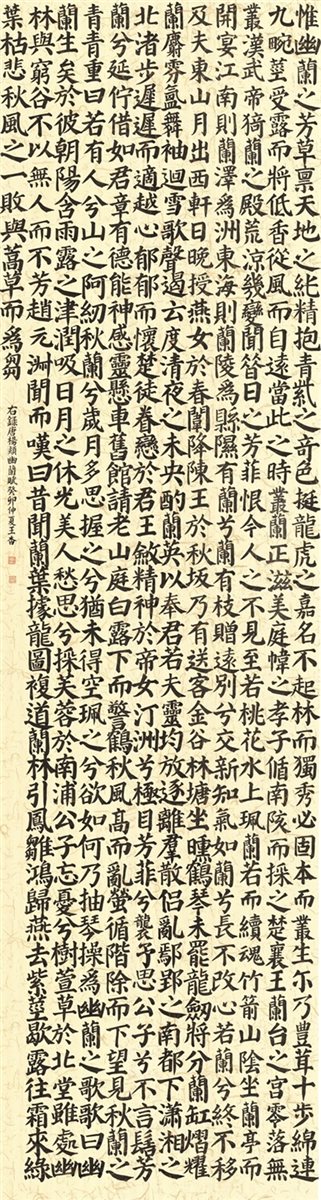 惟幽蘭之芳草禀天地之純精抱青紫之奇色挺龍虎之嘉名不起林而獨秀必固本而叢生尓乃豊茸十步綿連
九畹莖受露而將低香從風而自遠當此之時叢蘭正滋美庭幃之孝子循南陔而採之楚襄王蘭臺之宫零落無
叢漢武帝猗蘭之殿荒涼幾變聞昔日之芳菲恨今人之不見至若桃花水上珮蘭若而續魂竹箭山陰坐蘭亭而
開宴江南則蘭澤爲洲東海則蘭陵爲縣隰有蘭兮蘭有枝贈遠别兮交新知氣如蘭兮長不改心若蘭兮終不移
及夫東山月出西軒日晚授燕女於春閨降陳王於秋坂乃有送客金谷林塘坐曛鶴琴未罷龍劔將分蘭缸熠耀
蘭麝雰氲舞袖迴雪歌聲遏云度清夜之未央酌蘭英以奉君若夫靈均放逐離羣散侣亂鄢郢之南都下瀟湘之
北渚步遲遲而適越心郁郁而懷楚徒眷戀於君王斂精神於帝女汀洲兮極目芳菲兮襲予思公子兮不言髻芳
蘭兮延佇借如君章有德能神感靈懸車舊館請老山庭白露下而警鶴秋風高而亂螢循階除而下望見秋蘭之
青青重曰若有人兮山之阿紉秋蘭兮歲月多思握之兮猶未得空珮之兮欲如何乃抽琴操爲幽蘭之歌歌曰幽
蘭生矣於彼朝陽含雨露之津潤吸日月之休光美人愁思兮採芙蓉於南浦公子忘憂兮樹萱草於北堂雖處幽
林與窮谷不以無人而不芳趙元淑聞而嘆曰昔聞蘭葉據龍圖複道蘭林引鳳雛鴻歸燕去紫莖歇露往霜來緑
葉枯悲秋風之一敗與蒿草而爲芻
右録唐楊炯幽蘭賦癸卯仲夏王香